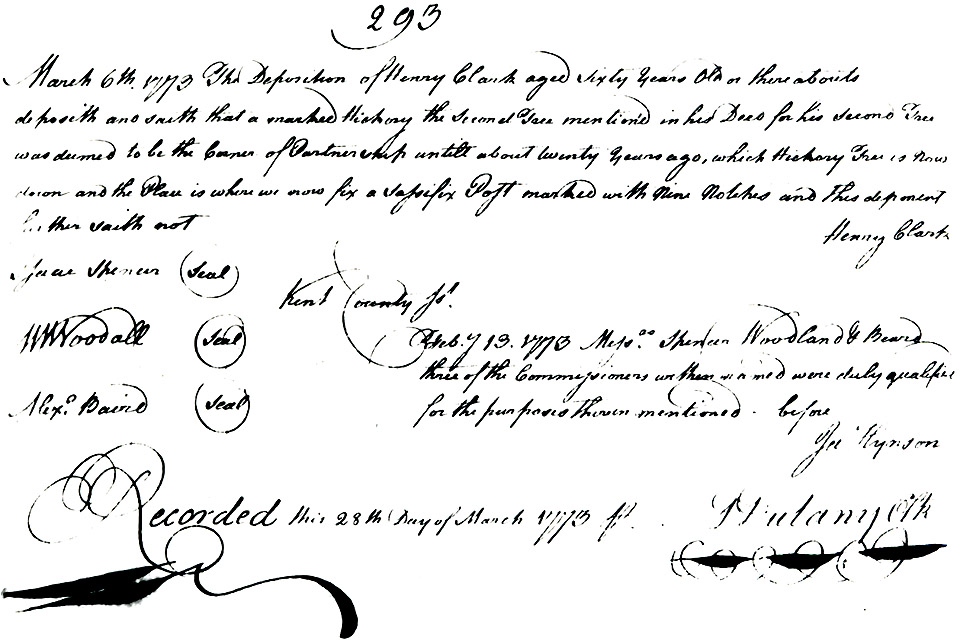 293
March 6th. 1773 The Deposition of Henry Clark aged Sixty Years Old or thereabouts
deposith and saith that a marked Hickory the Second Tree mentioned in his Deed for his second Tree
was deemed to be the Corner of Partnership untill about twenty Years ago, which Hickory Tree is now
down and the Place is where we now fix a Sassifix Post marked with Nine Notches and this deponent
further saith not
Henry Clark
Isaac Spencer (Seal)
Kent County Ss.
WWoodall (Seal)
Feby. 13. 1773 Messrs. Spencer Woodland & Beard
three of the Commissioners within named were duly qualified
Alexr. Baird (Seal)
for the purposes therein mentioned - before
Hynson
Recorded this 28th Day of March 1773 pr.
Clk